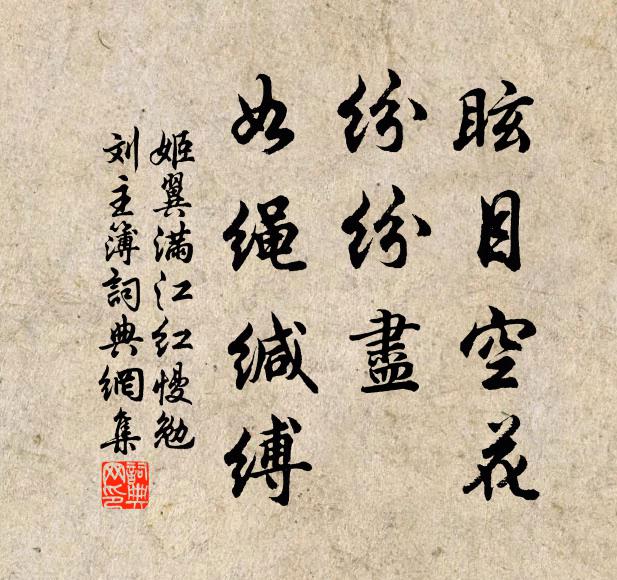 眩目空花
纷纷盡
如绳缄缚
姬翼满江红慢勉
刘主簿詞典網集
詞典
网印